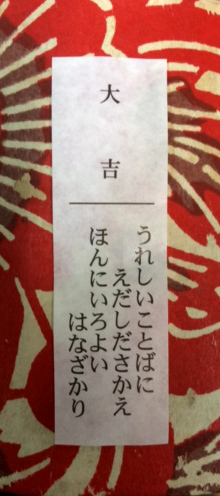 大吉
うれしいことばに
えだしださかえ
ほんにいろよい
はなざかり